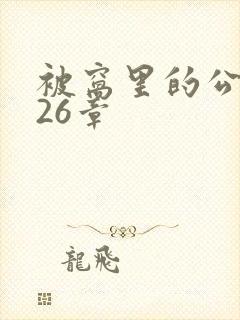 被窝里的公
26章
龍飛